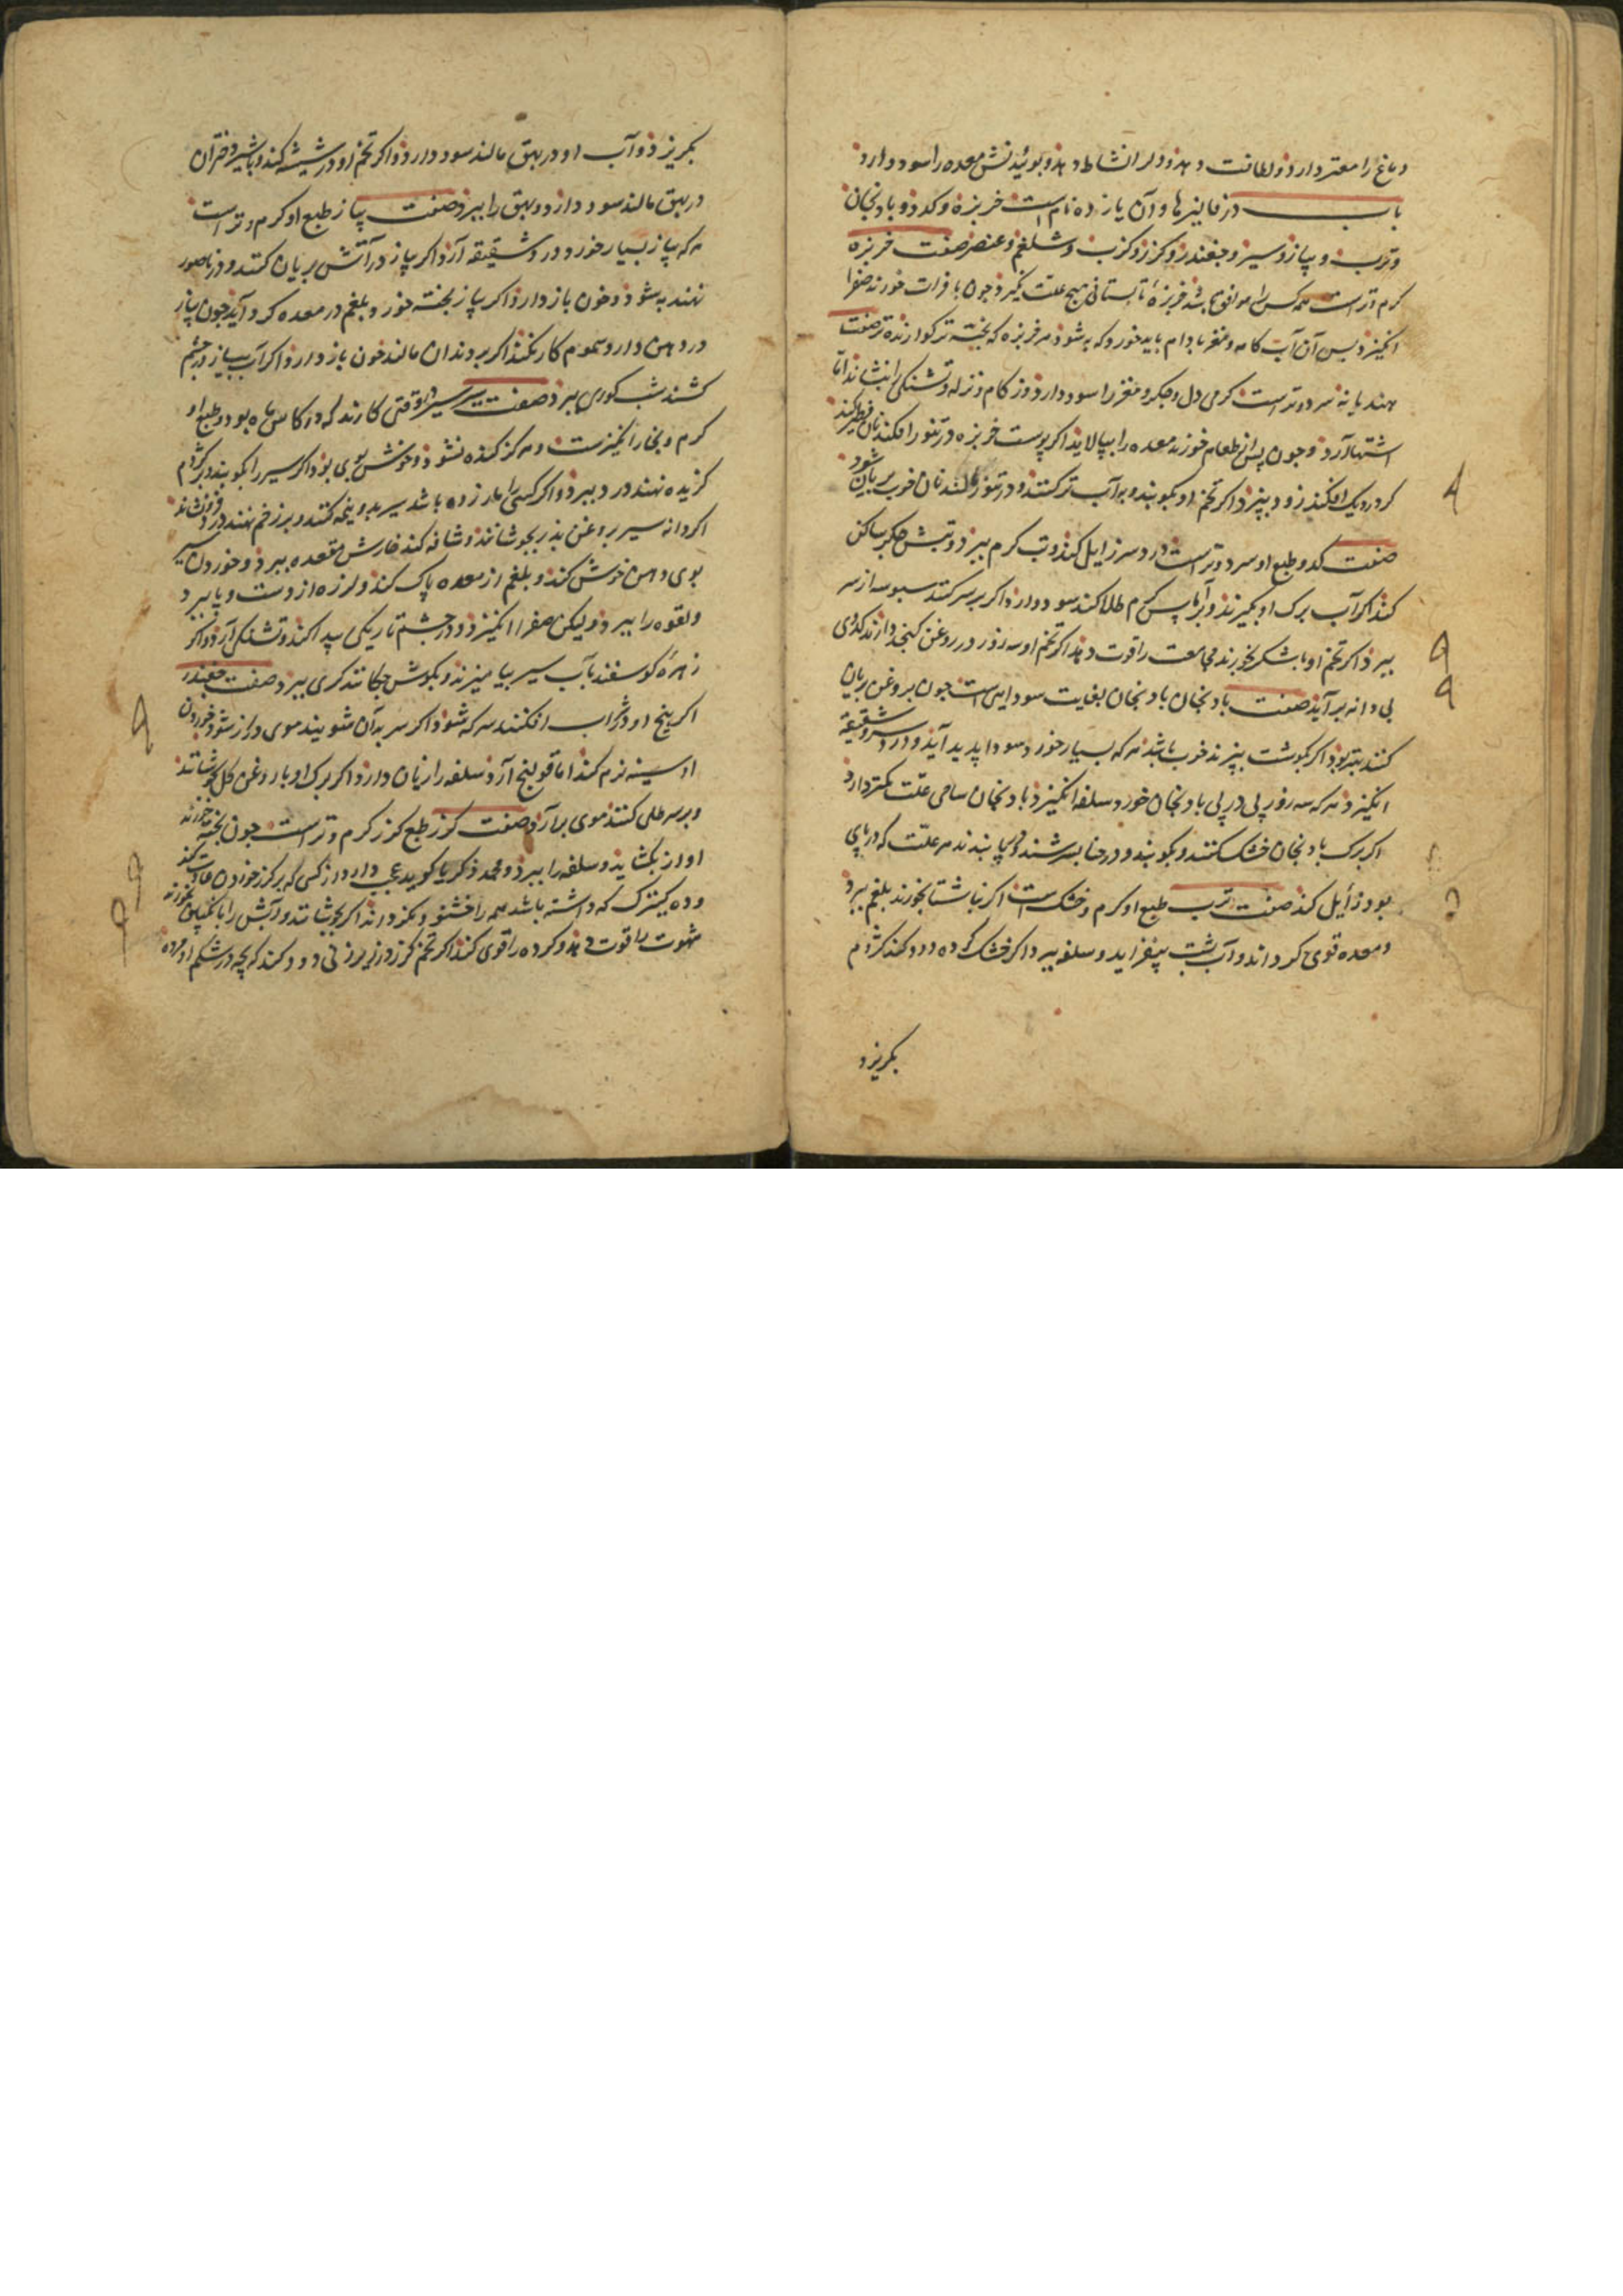 دماغ را معتبر دارد و لطافت دهد و دلرا نشاط دهد و بوئیدنش معده را سود دارد
باب در فالیزها و آن یازده نام است خربزه و کدو و بادنجان
و ترب و پیاز و سیر و جغندر و کزر و کرنب و شلغم و عنصر صفت خربزه
کرم و تر است همه کس را موافق باشد خربزهٔ تابستانی هیچ علت نکیرد جون بافراط خورند صفرا
انکیزد پس آن آب کامه و مغز بادام باید خورد که به شود هر خربزه که پخته تر کوارنده تر صفت
هندیانه سرد و تر است کرمی دل و جکر و مغز را سود دارد و زکام و نزله و تشنکی را بنشاند اما
اشتها آرد و جون پس از طعام خورند معده را بپالاید اکر پوست خربزه در تنور افکنند نان فطیر کند
کر در دیک افکنند زود بپزد اکر تخم او بکوبند و به آب تر کنند و در تنور مالند نان خوب بریان شود
صفت کدو طبع او سرد و تر است درد سر زایل کند و تب کرم ببرد و تبش جکر ساکن
کند اکر آب برک او بکیرند و بر آماس کرم طلا کنند سود دارد اکر بر سر کنند سبوسه از سر
ببرد اکر تخم او با شکر بخورند مجامعت را قوت دهد اکر تخم او سه روز در روغن کنجد دارند کدوی
بی دانه بر آید صفت بادنجان بادنجان بغایت سوداییست جون بروغن بریان
کنند بهتر بود اکر بکوشت بپزند خوب باشد هر که بسیار خورد سودا پدید آید و درد سر و شقیقه
انکیزد هر که سه روز پی در پی بادنجان خورد سلفه انکیزد بادنجان سامی علت کمتر دارد
اکر برک بادنجان خشک کنند و بکوبند و در حنا بسرشند و بپا بندند هر علت که در پای
بود زائل کند صفت ترب طبع او کرم و خشک است اکر ناشتا بخورند بلغم ببرد
و معده قوی کرداند و آب پشت بیفزاید و سلفه ببرد اکر خشک کرده دود کنند کژدم
بکریزد
بکریزد و آب او در بهق مالند سود دارد و اکر تخم او در شیشه کنند و با شیر دختران
در بهق مالند سود دارد و بهق را ببرد صفت پیاز طبع او کرم و تر است
هر که پیاز بسیار خورد درد شقیقه آرد اکر پیاز در آتش بریان کنند و در ناصور
نهند به شود و خون باز دارد اکر پیاز پخته خورد بلغم در معده کرد آید جون پیاز
در دهن دارد سموم کار نکند اکر بر دندان مالند خون باز دارد اکر آب پیاز در جشم
کشند شب کوری ببرد صفت سیر سیر در وقتی کارند که در کاس ماه بود و طبع او
کرم و بخار انکیزست و هرکز کنده نشود و خوش بوی بود اکر سیر را بکوبند بر کژدم
کزیده نهند درد ببرد و اکر کسی را مار زده باشد سیر بدو نیمه کنند و بر زخم نهند درد فرو نشاند
اکر دانه سیر بروغن بذر بجوشانند و شافه کنند خارش مقعده ببرد و خوردن سیر
بوی دهن خوش کند و بلغم از معده پاک کند و لرزه از دست و پا ببرد
و لقوه را ببرد و لیکن صفرا انکیزد و در جشم تاریکی پیدا کند و تشنکی آرد و اکر
زهرهٔ کوسفند بآب سیر بیامیزند و بکوش جکانند کری ببرد صفت جغندر
اکر بیخ او در شراب افکنند سرکه شود اکر سر به آن شویند موی دراز شود خوردن
او سینه نرم کند اما قولنج آرد سلفه را زیان دارد اکر برک او با روغن کل بجوشانند
و بر سر طلی کنند موی برآرد صفت کزر طبع کزر کرم و تر است جون پخته خورند
اواز بکشاید و سلفه را ببرد و محمد زکریا کوید عجب دارم از کسی که بر کزر خوردن عادت کند
و ده کنیزک که داشته باشد همه را خشنود نکرداند اکر بجوشانند و آبش را با انکبین بخورند
شهوت را قوت دهد و کرده را قوی کند اکر تخم کزر در زیر زنی دود کنند که بچه در شکم او مرده